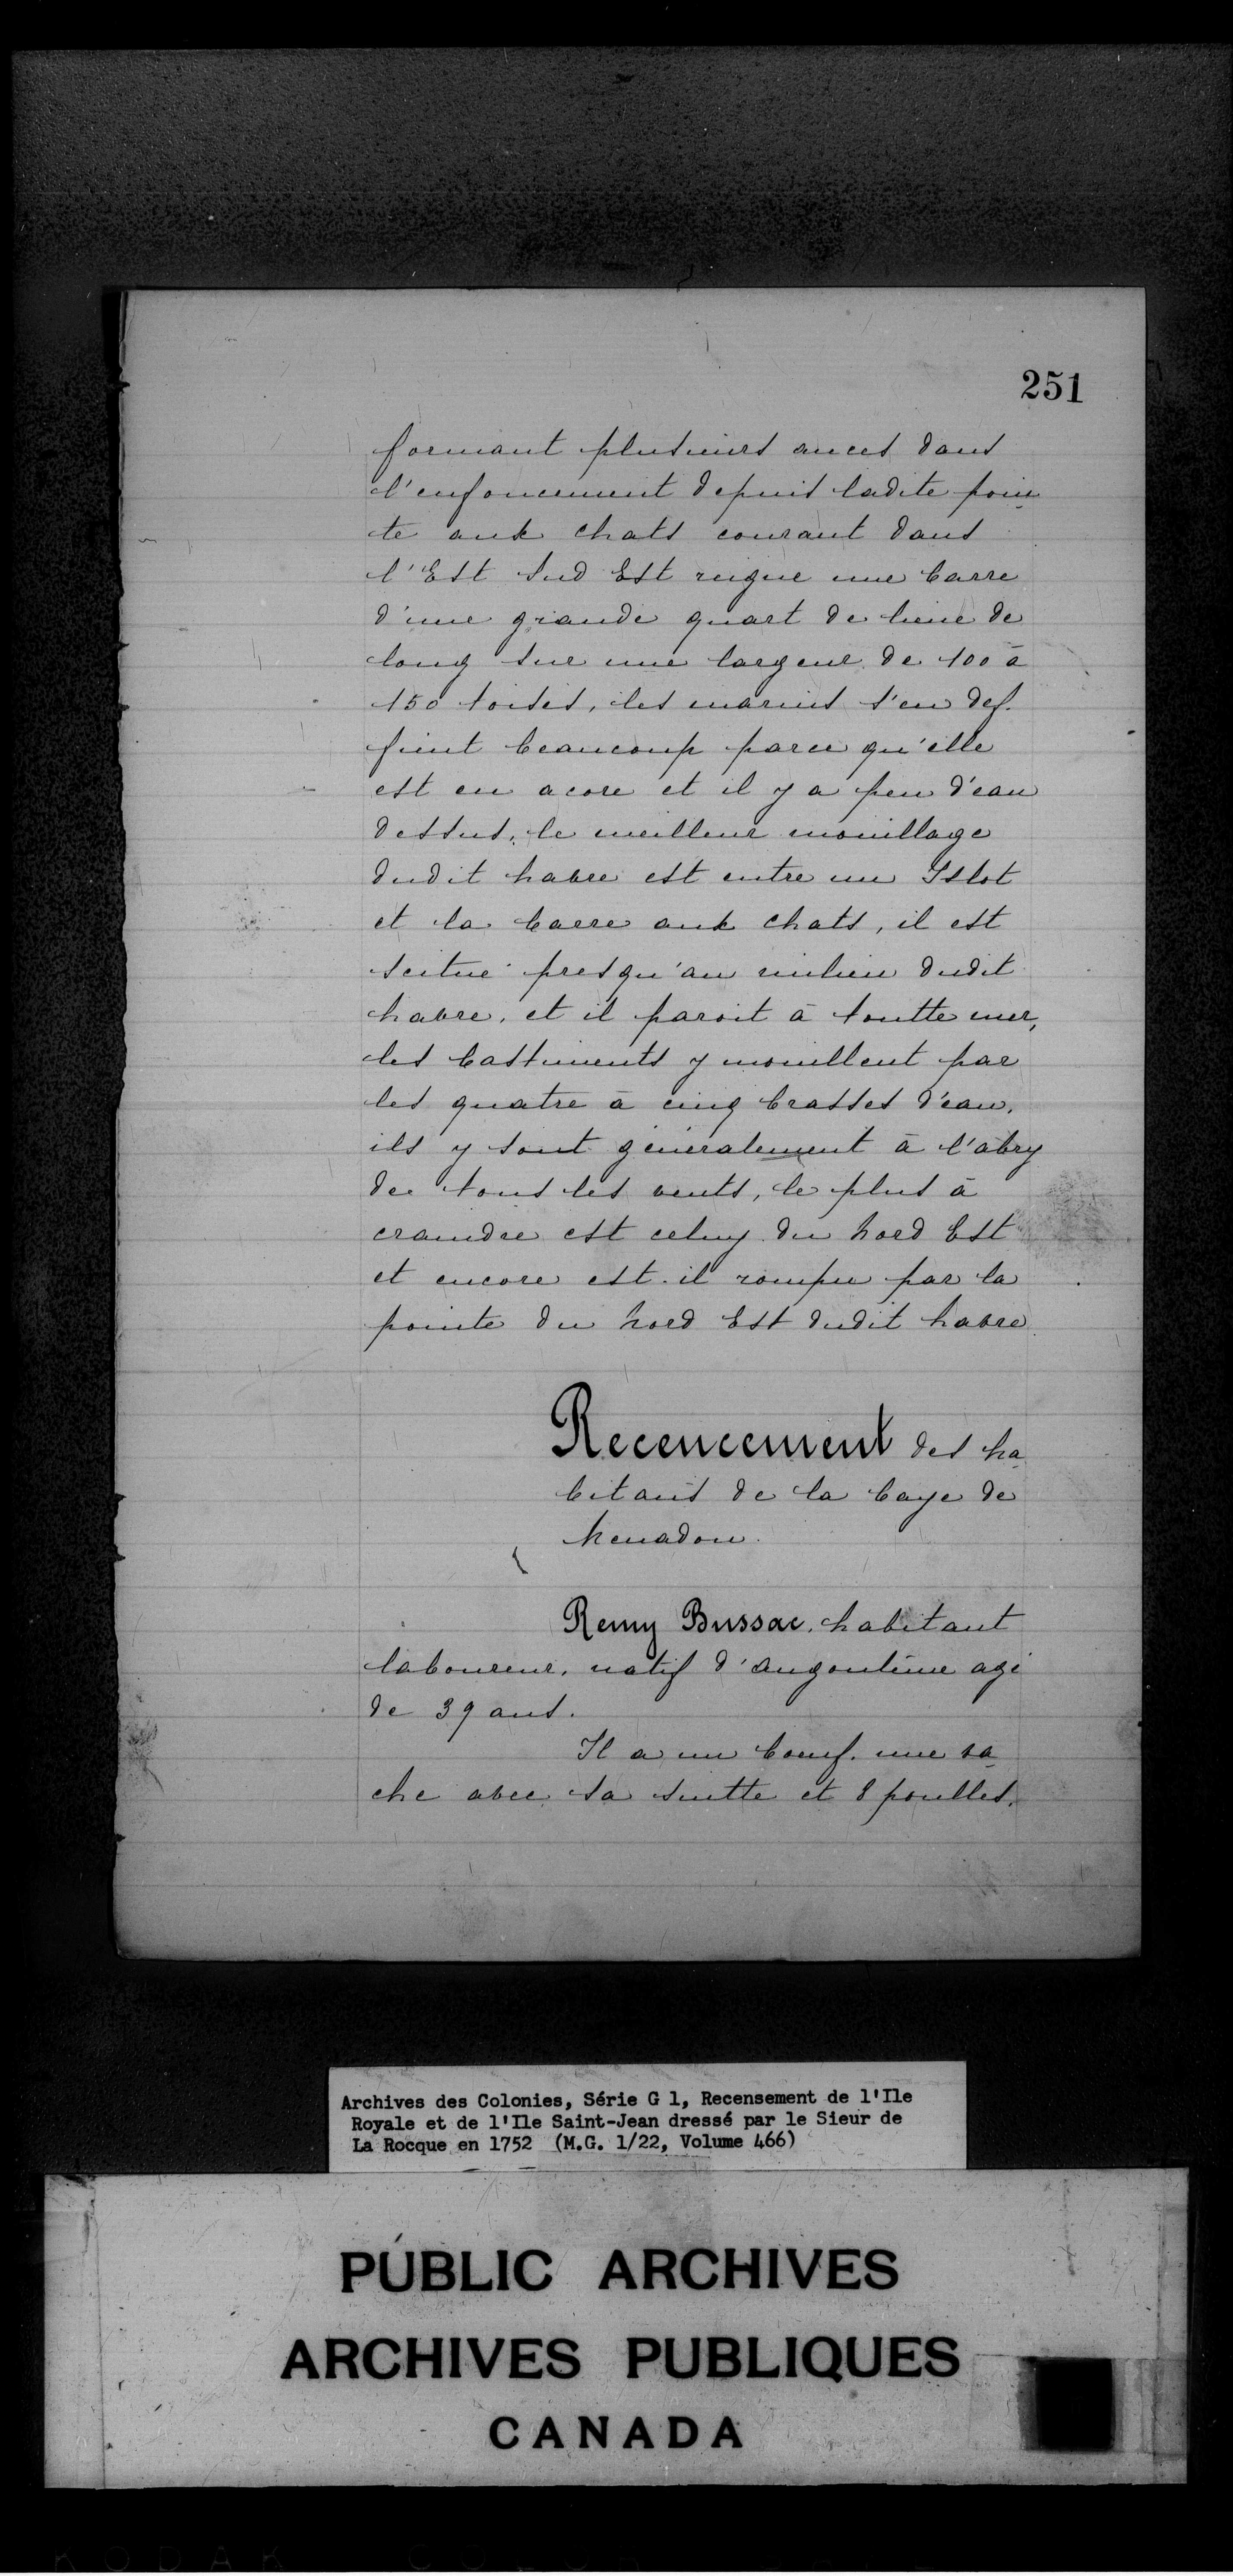 251
formant plusieurs ances dans
l'enfoncement depuis ladite poin
te aux chats courant dans
l'Est Sud Est reigne une barre
d'une grande quart de lieue de
long sur une largeur de 100 à
150 toises, les marins s'en def.
fient beaucoup parce qu'elle
est en acore et il y a peu d'eau
dessus, le meilleur mouillage
dudit havre est entre un Islot
et la barre aux chats, il est
scitué presqu'au milieu dudit
havre, et il paroit à toutte mer,
les bastiments y mouillent par
les quatre à cinq brasses d'eau,
ils y sont généralement à l'abry
de tous les vents, le plus à
craindre est celuy du Nord Est
et encore est-il rompu par la
pointe du Nord Est dudit havre
Recencement des ha
bitans de la baye de
Menadou.
Remy Bussac, habitant
laboureur, natif d'angoulême agé
de 39 ans.
Il a un boeuf, une va
che avec sa suitte et 8 poulles.
Archives des Colonies, Série G 1, Recensement de l'Ile
Royale et de l'Ile Saint-Jean dressé par le Sieur de
La Rocque en 1752 (M.G. 1/22, Volume 466)
PUBLIC ARCHIVES
ARCHIVES PUBLIQUES
CANADA
KODAK